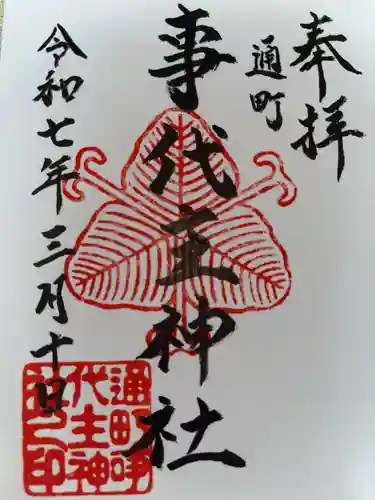 奉拝
通町
事代主神社
令和七年三月十日
通町
代主神